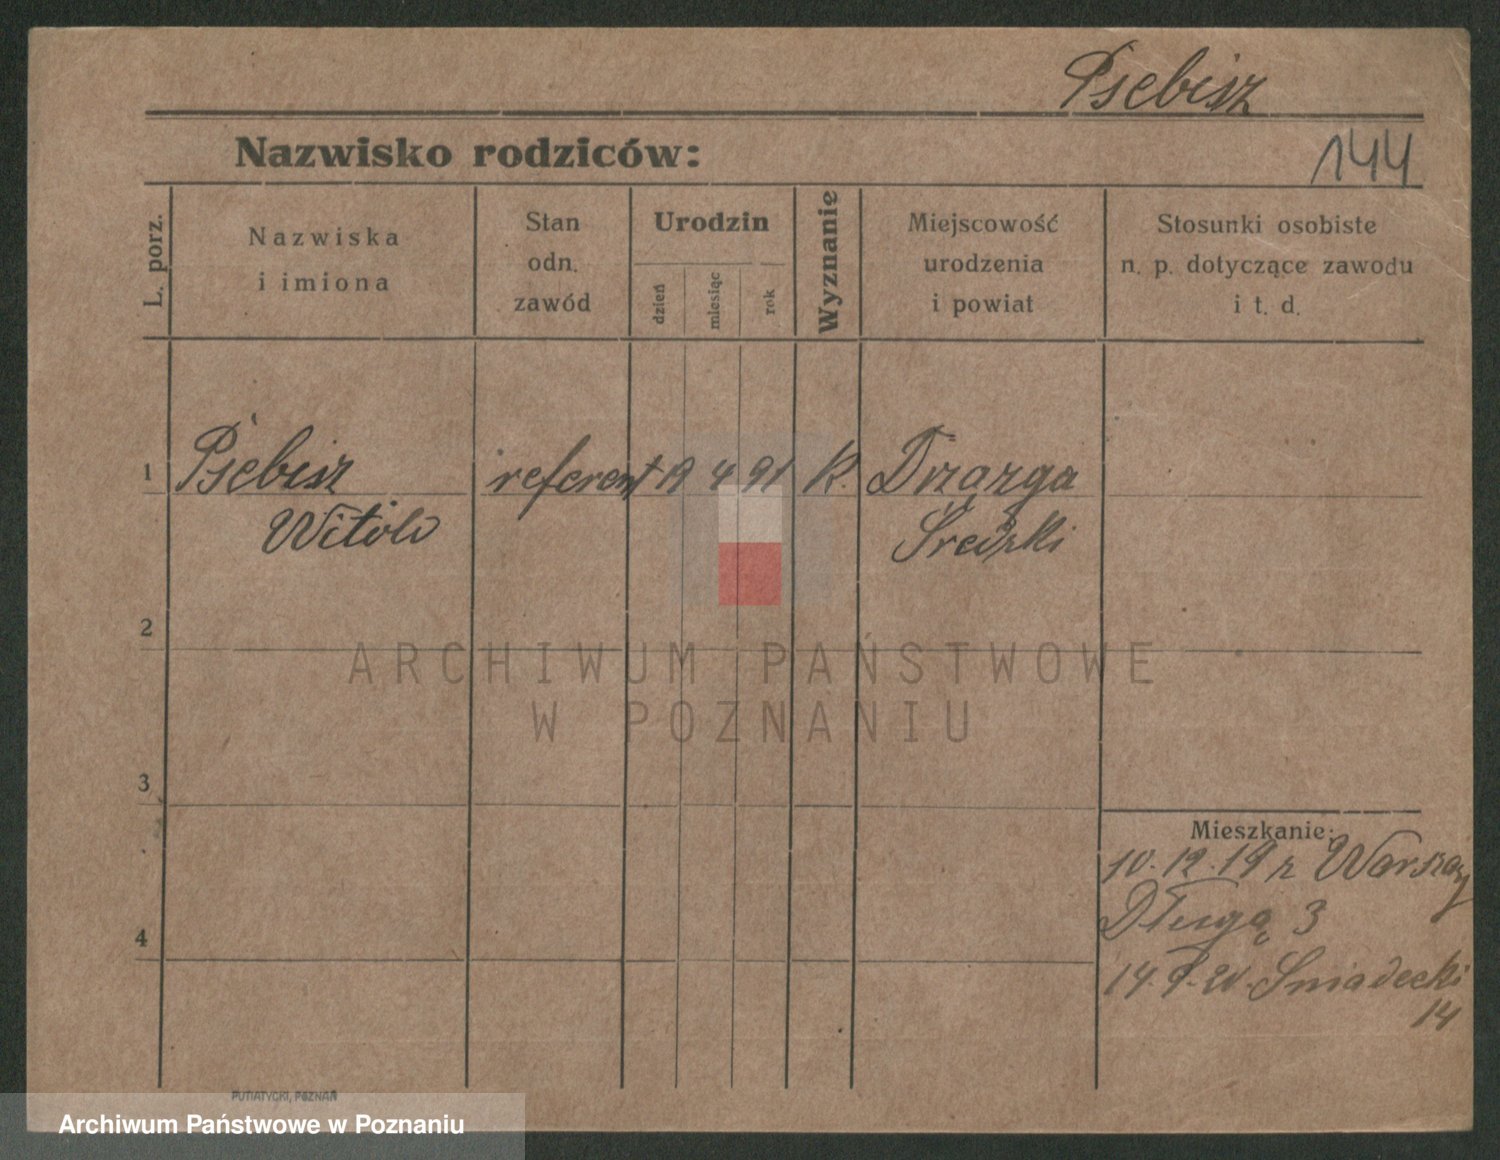 Psebisz
Nazwisko rodziców:
144
L. porz.
Nazwiska
i imiona
Stan
odn.
zawód
Urodzin
dzień
miesiąc
rok
Wyznanie
Miejscowość
urodzenia
i powiat
Stosunki osobiste
n. p. dotyczące zawodu
i t. d.
1 Psebisz referent 19 4 91 K. Drzazga
Witold Średzki
2
ARCHIWUM PAŃSTWOWE
W POZNANIU
3
Mieszkanie:
10.12.19 z Warszawy
Długą 3
4
14.9.20. Śniadecki
14
PUTIATYCKI, POZNAŃ
Archiwum Państwowe w Poznaniu